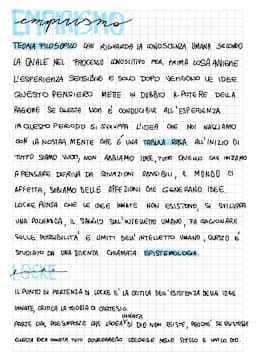 EMPIRISMO
empirismo
TEORIA FILOSOFICO CHE RIGUARDA LA CONOSCENZA UMANA SECONDO
LA QUALE NEL PROCESSO CONOSCITIVO PER PRIMA COSA AVVIENE
L'ESPERIENZA SENSIBILE E SOLO DOPO VENGONO LE IDEE.
QUESTO PENSIERO METTE IN DUBBIO IL POTERE DELLA
RAGIONE SE QUESTA NON È CONDUCIBILE ALL'ESPERIENZA.
IN QUESTO PERIODO SI SVILUPPA L'IDEA CHE NOI NASCIAMO
CON LA NOSTRA MENTE CHE È UNA TABULA RASA. ALL'INIZIO DI
TUTTO SIAMO VUOTI, NON ABBIAMO IDEE, TUTTO QUELLO CHE INIZIAMO
A PENSARE DERIVA DA SITUAZIONI SENSIBILI, IL MONDO CI
AFFETTA, SUBIAMO DELLE AFFEZIONI CHE GENERANO IDEE.
LOCKE PENSA CHE LE IDEE INNATE NON ESISTONO, SI SVILUPPA
UNA POLEMICA, IL SAGGIO SULL'INTELLETTO UMANO, FA RAGIONARE
SULLE POSSIBILITÀ E LIMITI DELL'INTELLETTO UMANO, QUESTO È
STUDIATO DA UNA SCIENZA CHIAMATA EPISTEMOLOGIA.
LOCKE
locke
IL PUNTO DI PARTENZA DI LOCKE È LA CRITICA DELL'ESISTENZA DELLE IDEE
INNATE, CRITICA LA TEORIA DI CARTESIO.
INNATA
PARTE DAL PRESUPPOSTO CHE L'IDEA DI DIO NON ESISTE, PERCHÉ SE ESISTESSE
QUESTA IDEA INNATA TUTTI DOVREBBERO CREDERE NELLO STESSO E UNICO DIO.